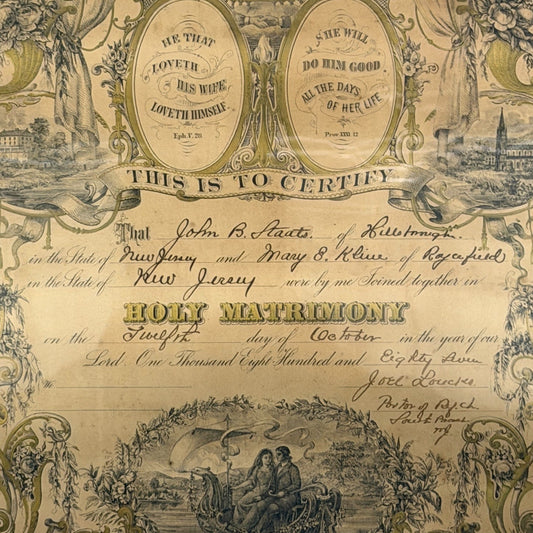 HE THAT
LOVETH
HIS WIFE
LOVETH HIMSELF.
Eph V. 28
SHE WILL
DO HIM GOOD
ALL THE DAYS
OF HER LIFE
Prov. XXXI. 12
THIS IS TO CERTIFY
That John B. Staats of Hillsborough
in the State of New Jersey and Mary E. Kline of
in the State of New Jersey were by me Joined together in
HOLY MATRIMONY
on the Twelfth day of October in the year of our
Lord One Thousand Eight Hundred and Eighty Seven
Joel Loucks
Pastor of